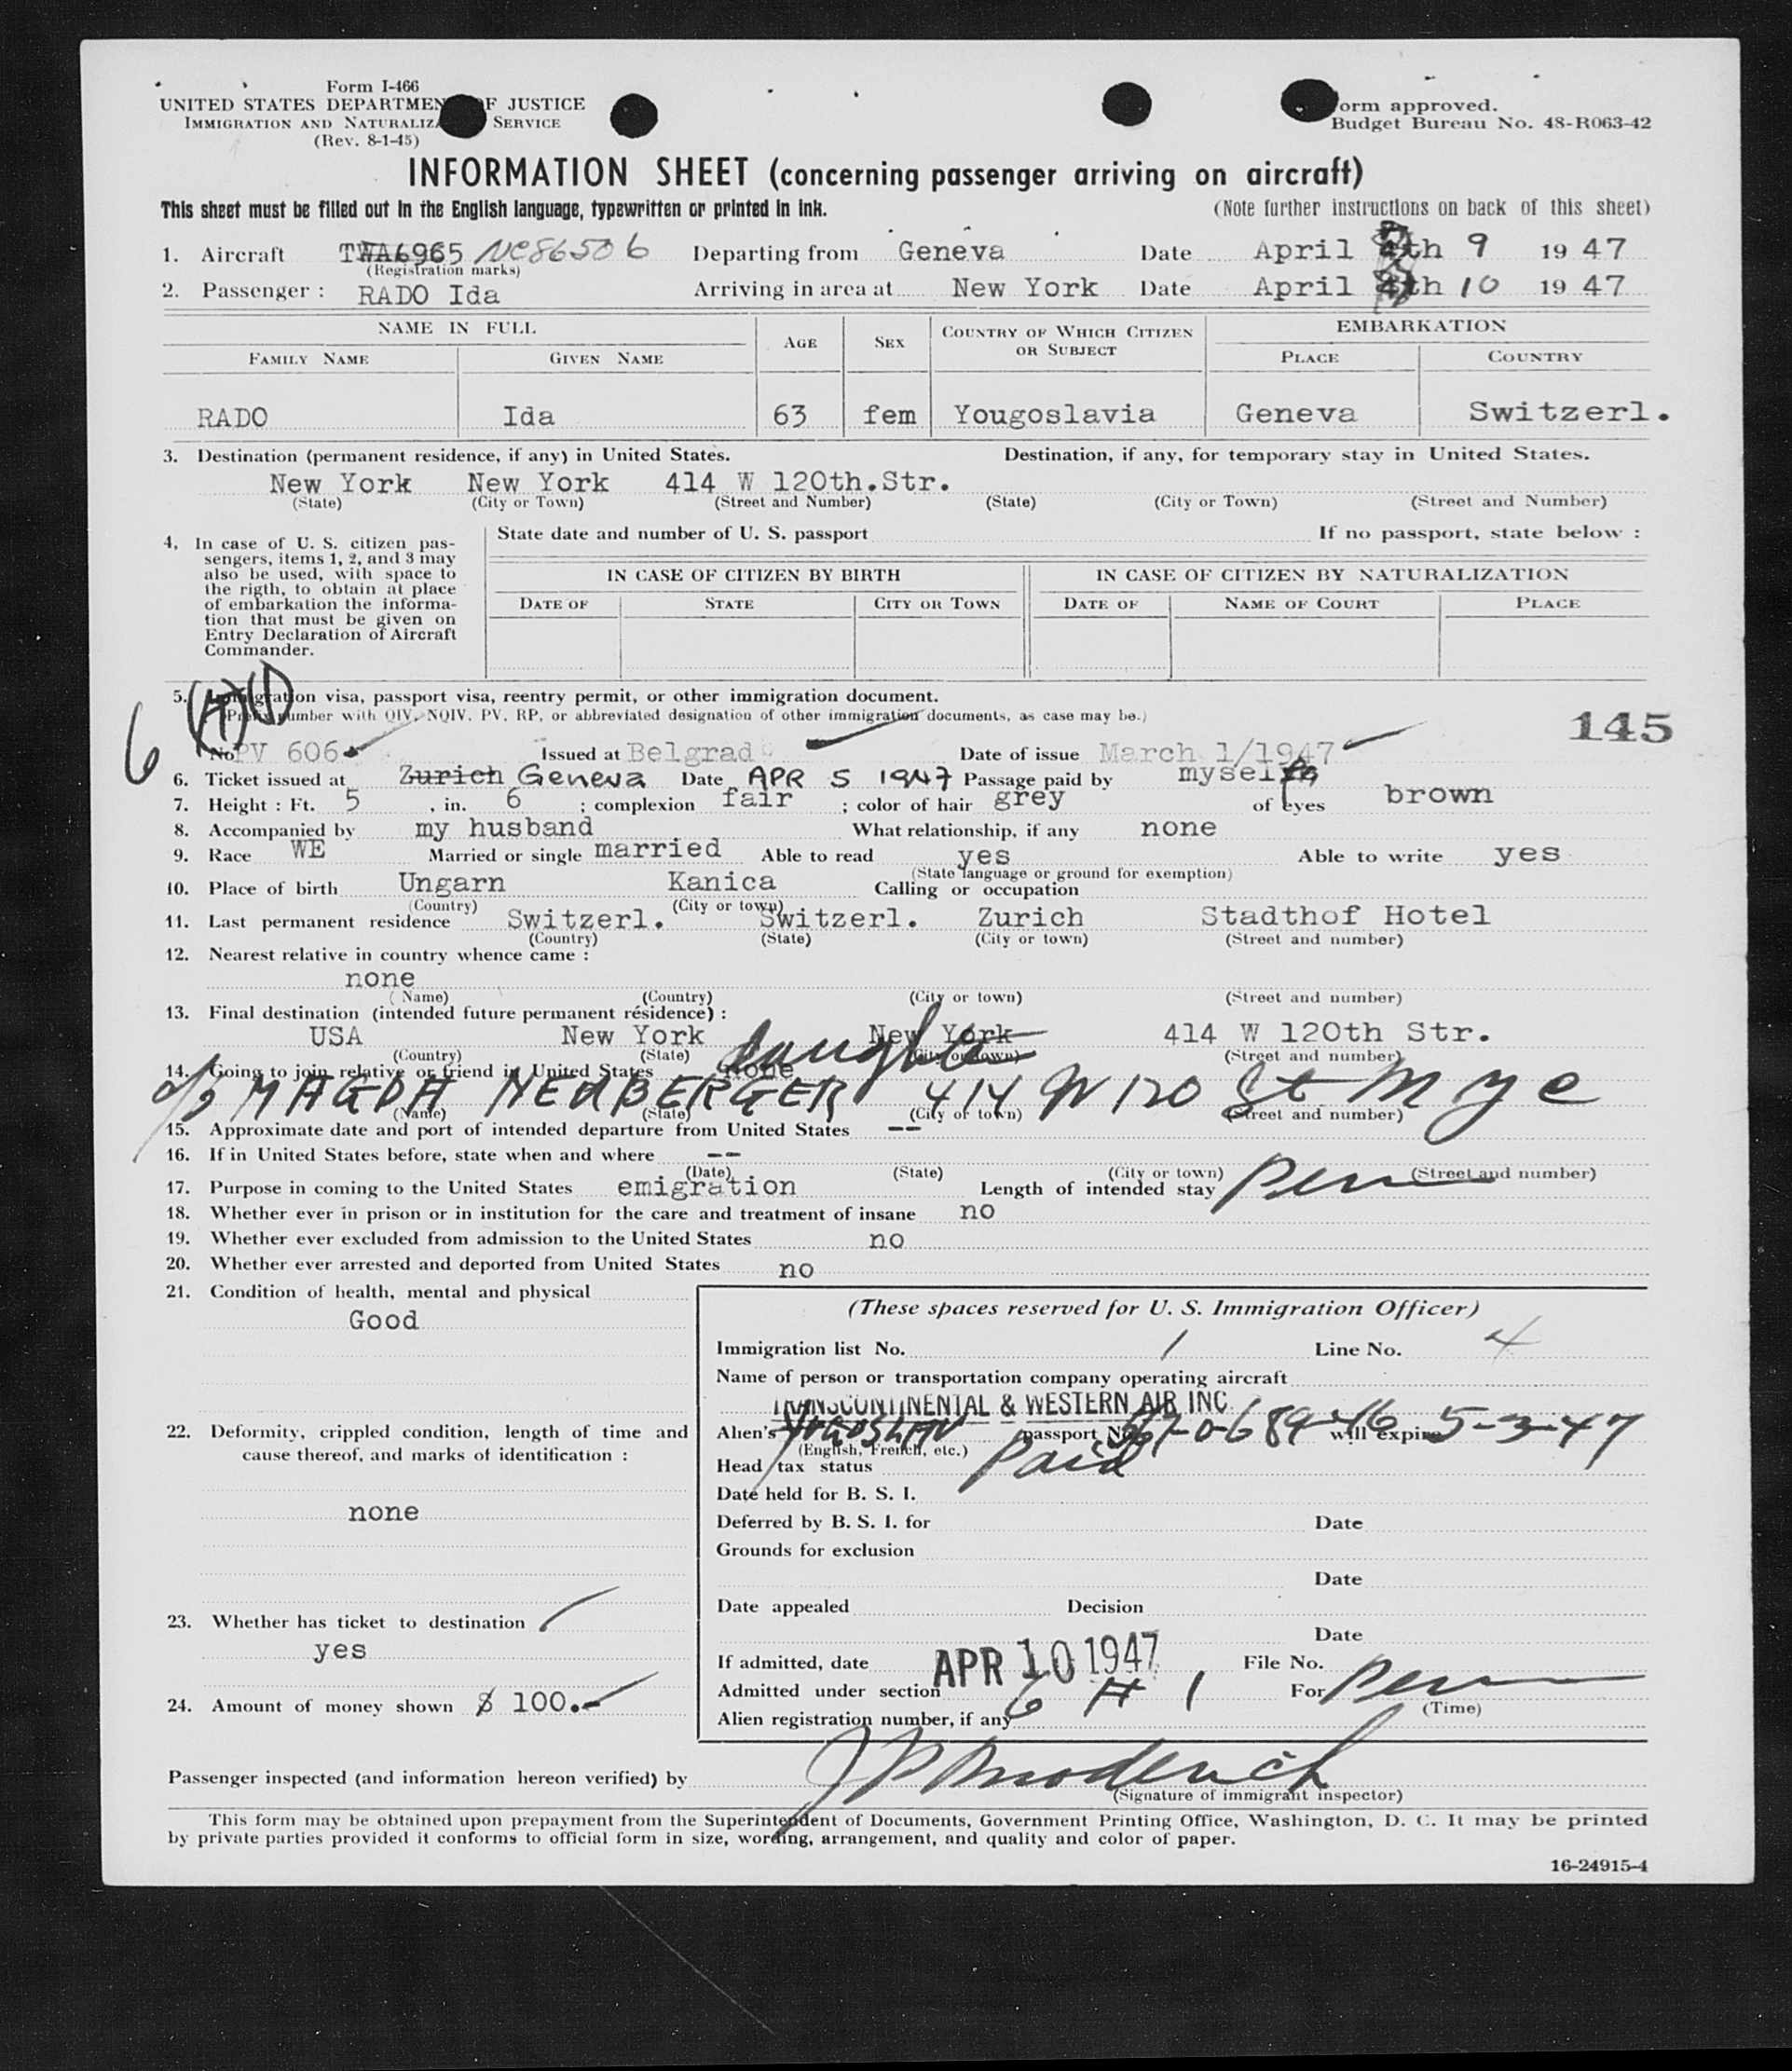 Form I-466
UNITED STATES DEPARTMENT OF JUSTICE
IMMIGRATION AND NATURALIZATION SERVICE
(Rev. 8-1-45)
Form approved.
Budget Bureau No. 48-R063-42
INFORMATION SHEET (concerning passenger arriving on aircraft)
This sheet must be filled out in the English language, typewritten or printed in ink.
(Note further instructions on back of this sheet)
1. Aircraft TWA6965 NC86506 Departing from Geneva Date April 4th 9 19 47
(Registration marks)
2. Passenger : RADO Ida Arriving in area at New York Date April th 10 19 47
NAME IN FULL AGE SEX COUNTRY OF WHICH CITIZEN OR SUBJECT EMBARKATION
FAMILY NAME GIVEN NAME PLACE COUNTRY
RADO Ida 63 fem Yougoslavia Geneva Switzerl.
3. Destination (permanent residence, if any) in United States. Destination, if any, for temporary stay in United States.
New York New York 414 W 120th.Str.
(State) (City or Town) (Street and Number) (State) (City or Town) (Street and Number)
4. In case of U. S. citizen pas-
sengers, items 1, 2, and 3 may
also be used, with space to
the rigth, to obtain at place
of embarkation the informa-
tion that must be given on
Entry Declaration of Aircraft
Commander.
State date and number of U. S. passport If no passport, state below :
IN CASE OF CITIZEN BY BIRTH IN CASE OF CITIZEN BY NATURALIZATION
DATE OF STATE CITY OR TOWN DATE OF NAME OF COURT PLACE
6 (A)(1)
5. Immigration visa, passport visa, reentry permit, or other immigration document.
(Prefix number with QIV, NQIV, PV, RP, or abbreviated designation of other immigration documents, as case may be.)
145
No. PV 606 Issued at Belgrad Date of issue March 1/1947
6. Ticket issued at Zurich Geneva Date APR 5 1947 Passage paid by myself
7. Height : Ft. 5 , in. 6 ; complexion fair ; color of hair grey of eyes brown
8. Accompanied by my husband What relationship, if any none
9. Race WE Married or single married Able to read yes Able to write yes
(State language or ground for exemption)
10. Place of birth Ungarn Kanica Calling or occupation
(Country) (City or town)
11. Last permanent residence Switzerl. Switzerl. Zurich Stadthof Hotel
(Country) (State) (City or town) (Street and number)
12. Nearest relative in country whence came :
none
(Name) (Country) (City or town) (Street and number)
13. Final destination (intended future permanent résidence) :
USA New York New York 414 W 120th Str.
(Country) (State) (City or town) (Street and number)
14. Going to join relative or friend in United States none daughter
MAGDA NEUBERGER 414 W 120 St N Y C
(Name) (State) (City or town) (Street and number)
15. Approximate date and port of intended departure from United States --
16. If in United States before, state when and where --
(Date) (State) (City or town) (Street and number)
17. Purpose in coming to the United States emigration Length of intended stay Perm
18. Whether ever in prison or in institution for the care and treatment of insane no
19. Whether ever excluded from admission to the United States no
20. Whether ever arrested and deported from United States no
21. Condition of health, mental and physical
Good
22. Deformity, crippled condition, length of time and
cause thereof, and marks of identification :
none
23. Whether has ticket to destination
yes
24. Amount of money shown $ 100.-
(These spaces reserved for U. S. Immigration Officer)
Immigration list No. 1 Line No. 4
Name of person or transportation company operating aircraft
TRANSCONTINENTAL & WESTERN AIR INC
Alien's YUGOSLAV passport No. will expire 5-3-47
(English, French, etc.)
Head tax status Paid
Date held for B. S. I.
Deferred by B. S. I. for Date
Grounds for exclusion
Date
Date appealed Decision
Date
If admitted, date APR 10 1947 File No.
Admitted under section 6 A 1 For Perm
(Time)
Alien registration number, if any
Passenger inspected (and information hereon verified) by
(Signature of immigrant inspector)
This form may be obtained upon prepayment from the Superintendent of Documents, Government Printing Office, Washington, D. C. It may be printed
by private parties provided it conforms to official form in size, wording, arrangement, and quality and color of paper.
16-24915-4